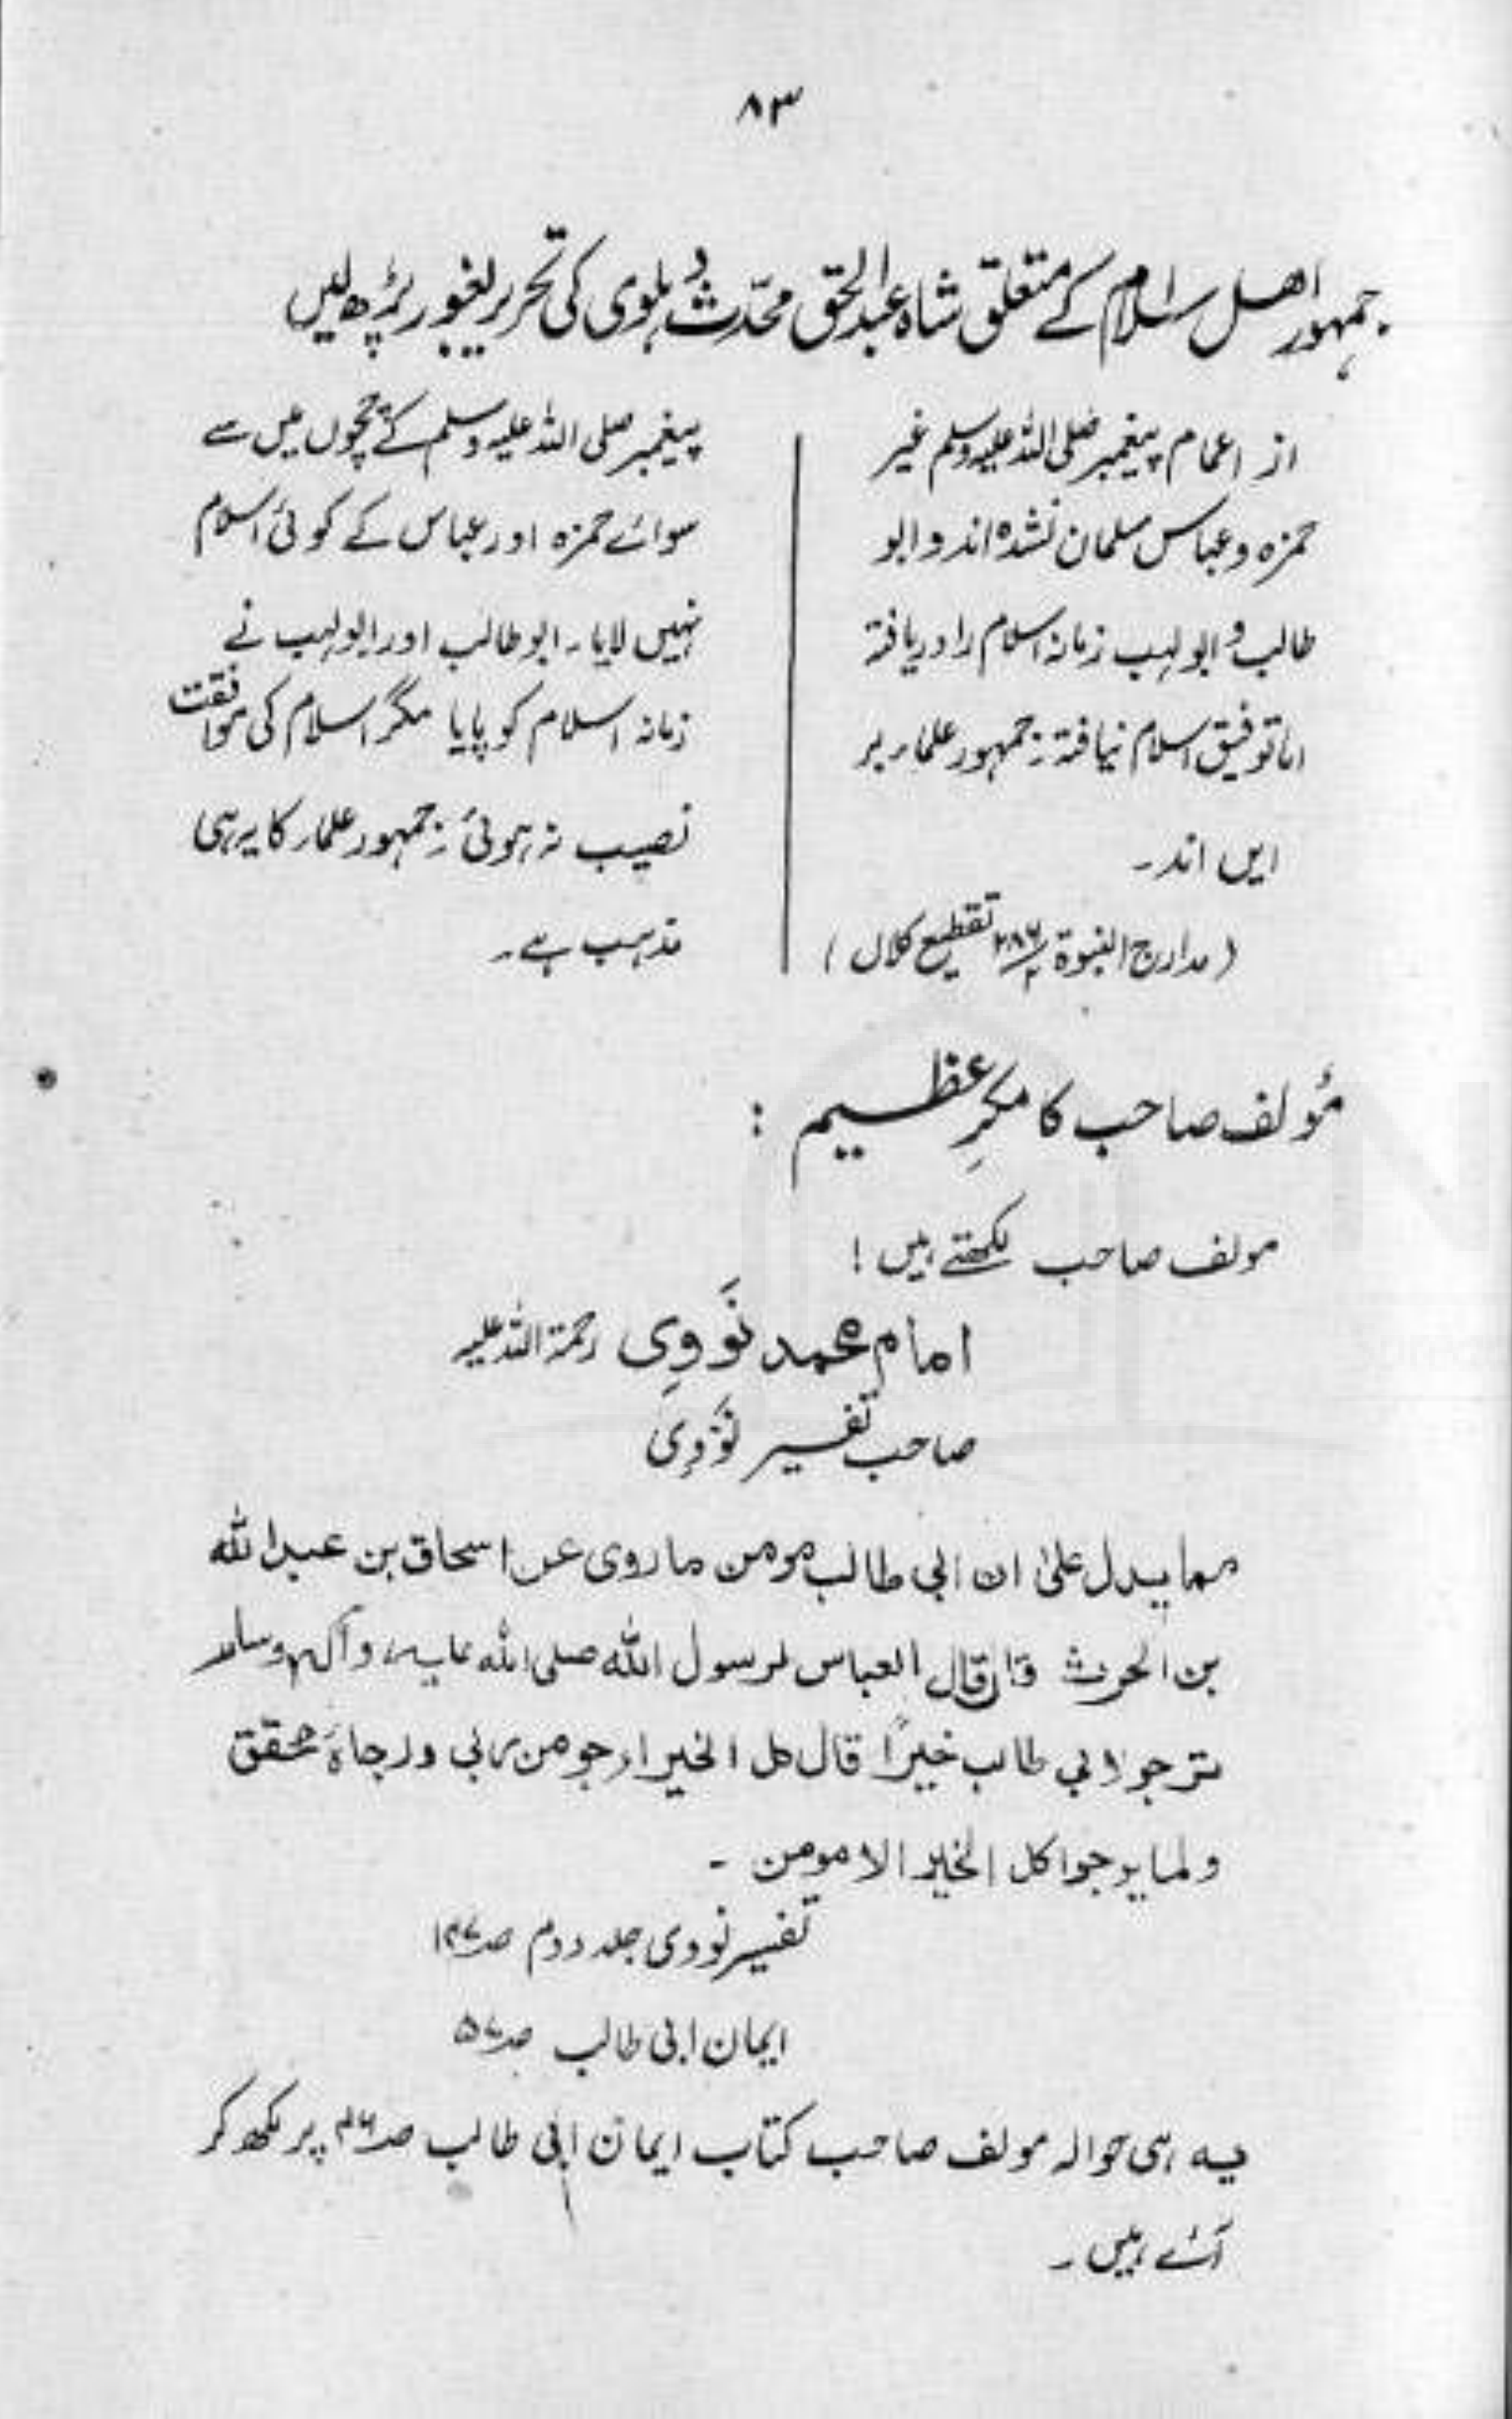 ۸۳
جمہور اھل سلام کے متعلق شاہ عبدالحق محدّث دہلوی کی تحریر بغور پڑھ لیں
از اعمام پیغمبر صلی اللہ علیہ وسلم غیر
حمزہ و عباس مسلمان نشدہ اند و ابو
طالب و ابو لہب زمانہ اسلام را دریافتہ
اما توفیق اسلام نیافتہ: جمہور علماء بر
ایں اند۔
(مدارج النبوۃ تقطیع کلاں)
پیغمبر صلی اللہ علیہ وسلم کے چچوں میں سے
سوائے حمزہ اور عباس کے کوئی اسلام
نہیں لایا۔ ابو طالب اور ابولہب نے
زمانہ اسلام کو پایا مگر اسلام کی موافقت
نصیب نہ ہوئی: جمہور علماء کا یہ ہی
مذہب ہے۔
مؤلف صاحب کا مکرِ عظیم :
مولف صاحب لکھتے ہیں !
امام محمد نَووِی رحمۃ اللہ علیہ
صاحب تفسیر نَووِی
مما یدل علیٰ ان ابی طالب مومن ما روی عن اسحاق بن عبداللہ
بن الحرث قال قال العباس لرسول اللہ صلی اللہ علیہ وآلہ وسلم
ترجو لابی طالب خیرًا قال کل الخیر ارجو من ربی ورجاہٗ محقق
ولما یرجوا کل الخیر الا مومن ۔
تفسیر نووی جلد دوم صـ۱۴۷
ایمان ابی طالب صـ۵۷
یہ ہی حوالہ مولف صاحب کتاب ایمان ابی طالب صـ۴۶ پر لکھ کر
آئے ہیں۔